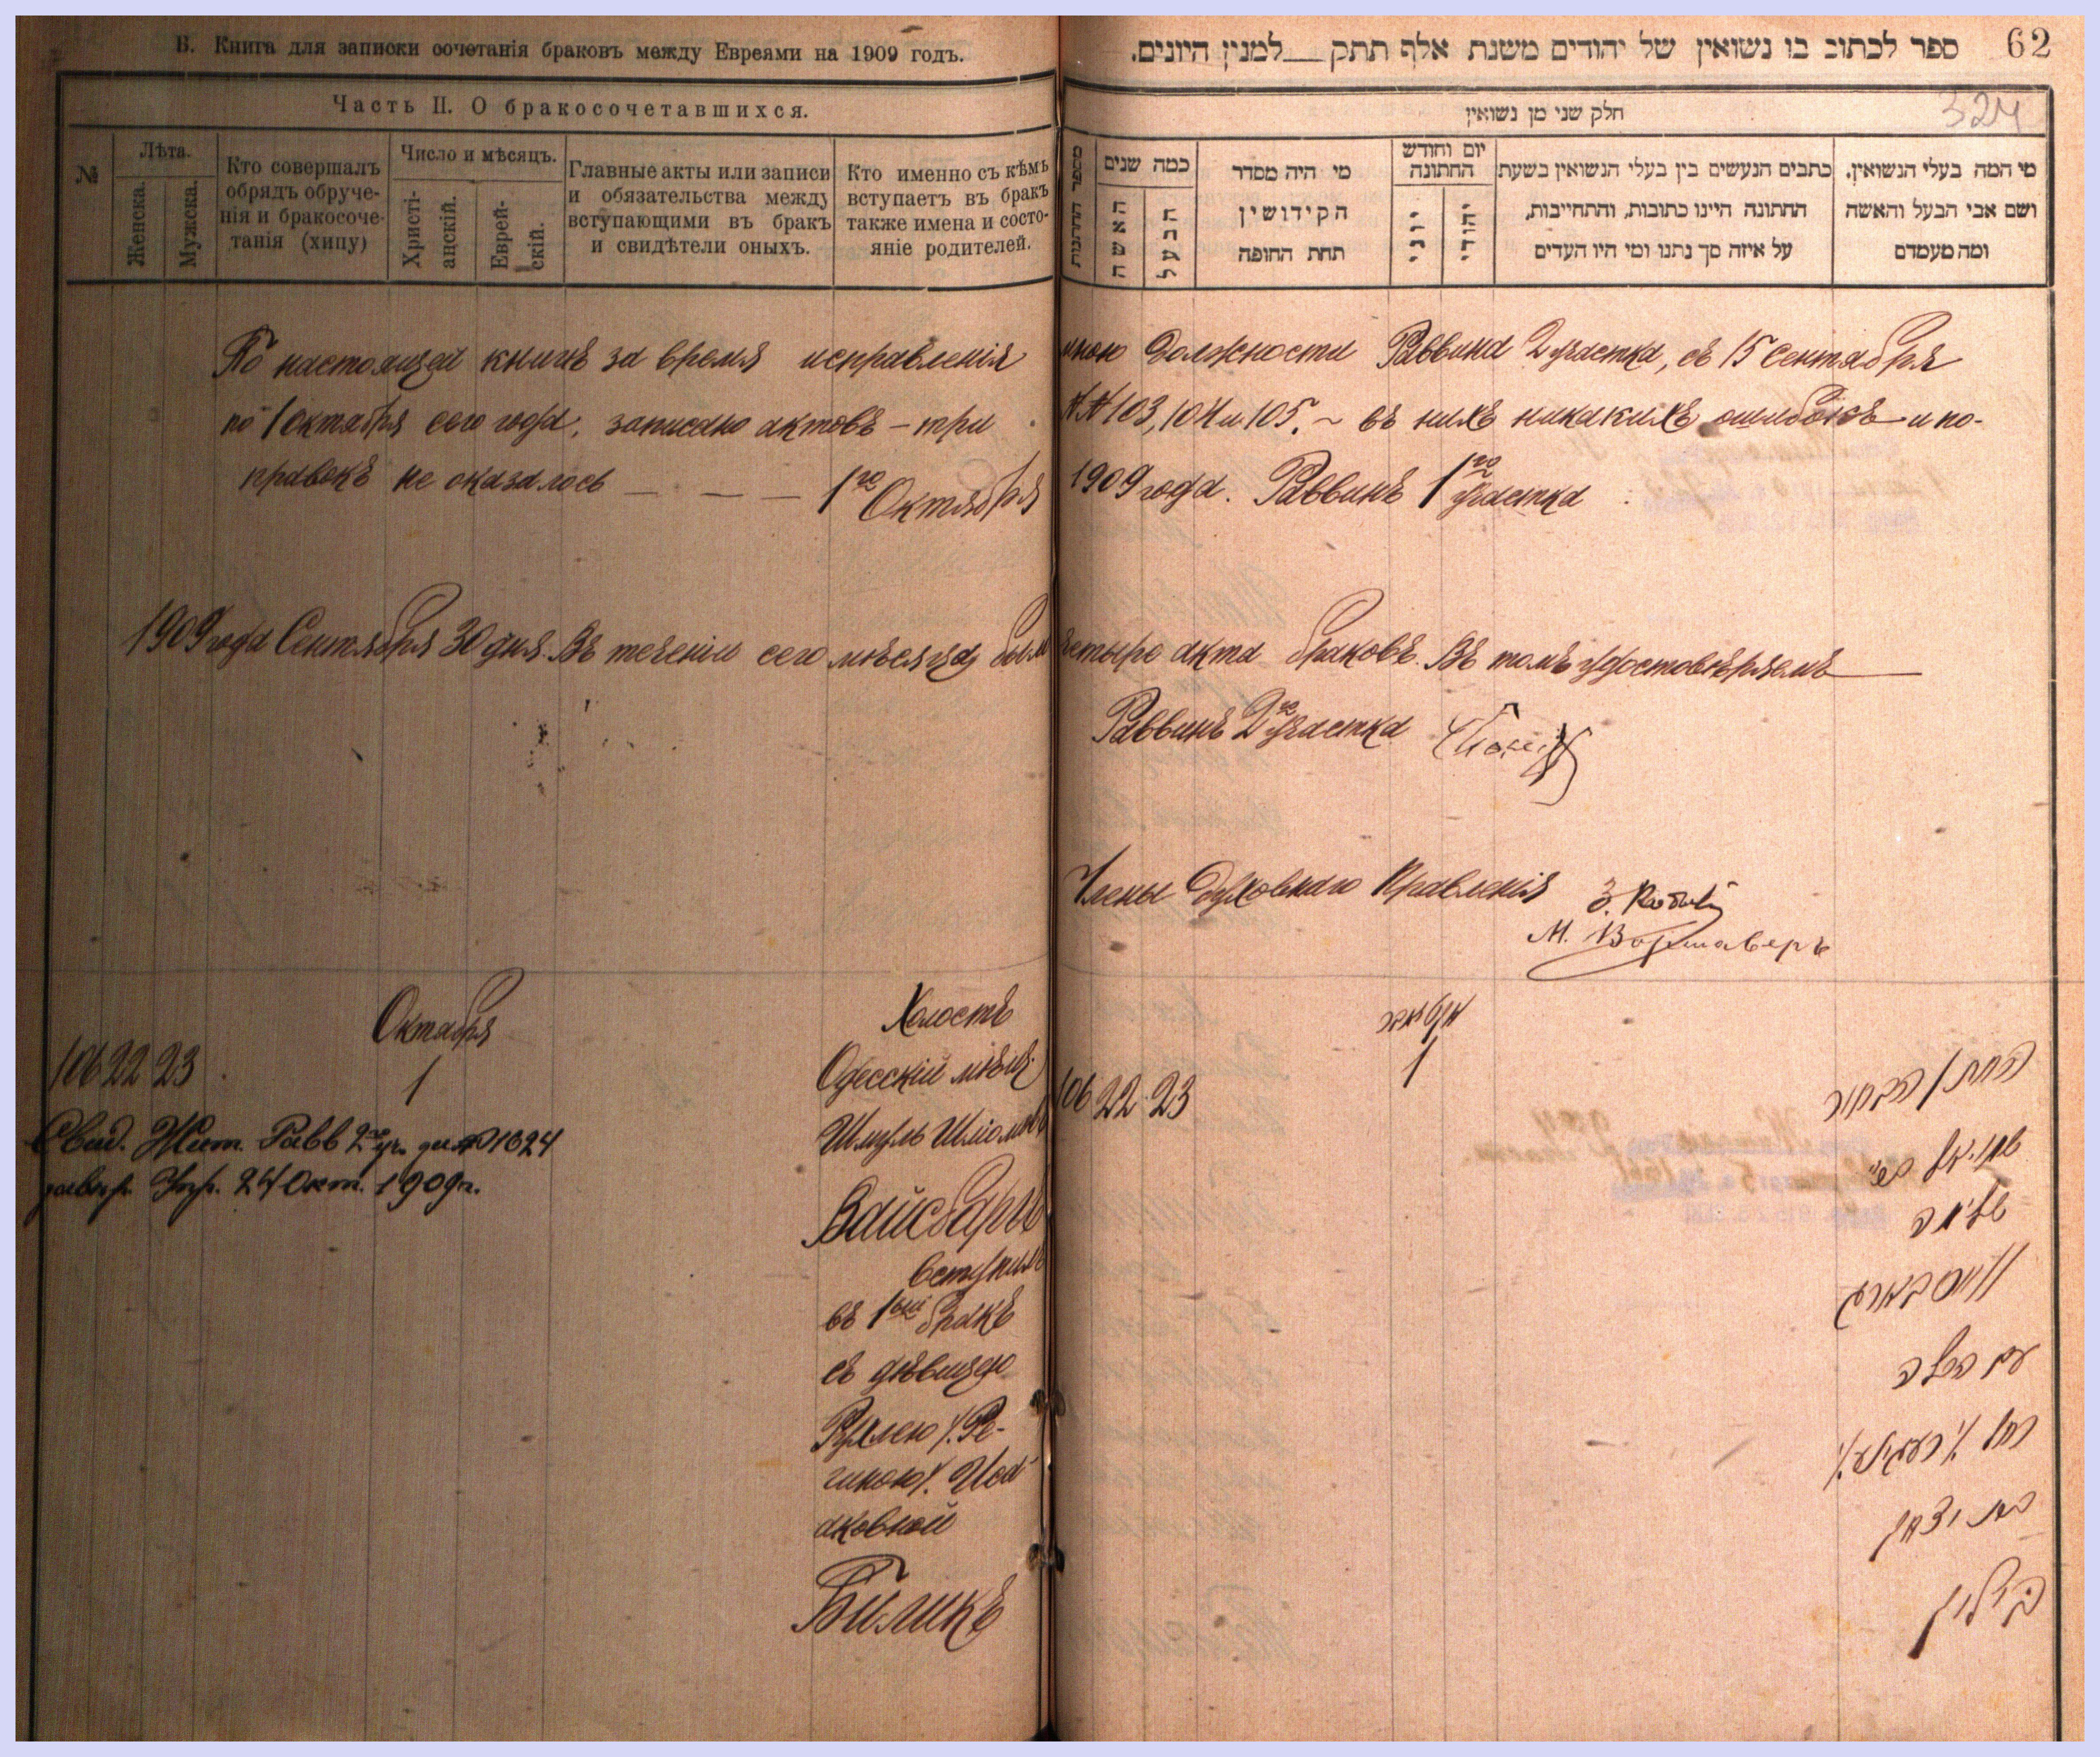 В. Книга для записки сочетанія браковъ между Евреями на 1909 годъ.
Часть II. О бракосочетавшихся.
№
Лѣта.
Женска.
Мужска.
Кто совершалъ
обрядъ обруче-
нія и бракосоче-
танія (хипу)
Число и мѣсяцъ.
Христі-
анскій.
Еврей-
скій.
Главные акты или записи
и обязательства между
вступающими въ бракъ
и свидѣтели оныхъ.
Кто именно съ кѣмъ
вступаетъ въ бракъ
также имена и состо-
яніе родителей.
ספר לכתוב בו נשואין של יהודים משנת אלף תתק__למנין היונים.
62
324
חלק שני מן נשואין
מספר החתונות
כמה שנים
האשה
הבעל
מי היה מסדר
הקידושין
תחת החופה
יום וחודש
החתונה
יוני
יהודי
כתבים הנעשים בין בעלי הנשואין בשעת
החתונה היינו כתובות, והתחייבות,
על איזה סך נתנו ומי היו העדים
מי המה בעלי הנשואין.
ושם אבי הבעל והאשה
ומה מעמדם
По настоящей книгѣ за время исправленія мною должности Раввина 2 участка, съ 15 сентября
по 1 октября сего года, записано актовъ – три №№ 103, 104 и 105. ~ въ нихъ никакихъ ошибокъ и по-
правокъ не оказалось — — — 1го Октября 1909 года. Раввинъ 1го участка
1909 года Сентября 30 дня. Въ теченіи сего мѣсяца было четыре акта браковъ. Въ томъ удостовѣряемъ
Раввинъ 2го участка
Члены Духовнаго Правленія
М. Варшаверъ
Октября
106 22 23
1
Свид. Жит. Равв 2го уч. за № 1624
24 Окт. 1909 г.
Холостъ
Одесскій мѣщ.
Шмуль Шліомовъ
Вайсбаргъ
вступилъ
въ 1ый бракъ
съ дѣвицею
Рухлею /. Ре-
гиною/. Иса
аковной
Биликъ
106 22 23
אקטאבר
1
החתן הבחור
שמואל בש"
שלמה
ווייסבארג
עם הכלה
רחל /. רעגינע/.
בת יצחק
בילוק